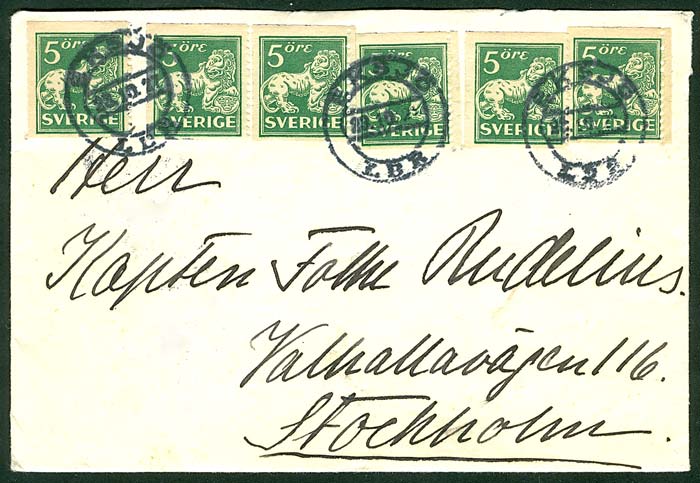 5 öre 5 öre 5 öre 5 öre 5 öre 5 öre
SVERIGE SVERIGE SVERIGE SVERIGE SVERIGE SVERIGE
EKSJÖ EKSJÖ EKSJÖ
LBR LBR LBR
Herr
Kapten Folke Rudelius.
Valhallavägen 116.
Stockholm.